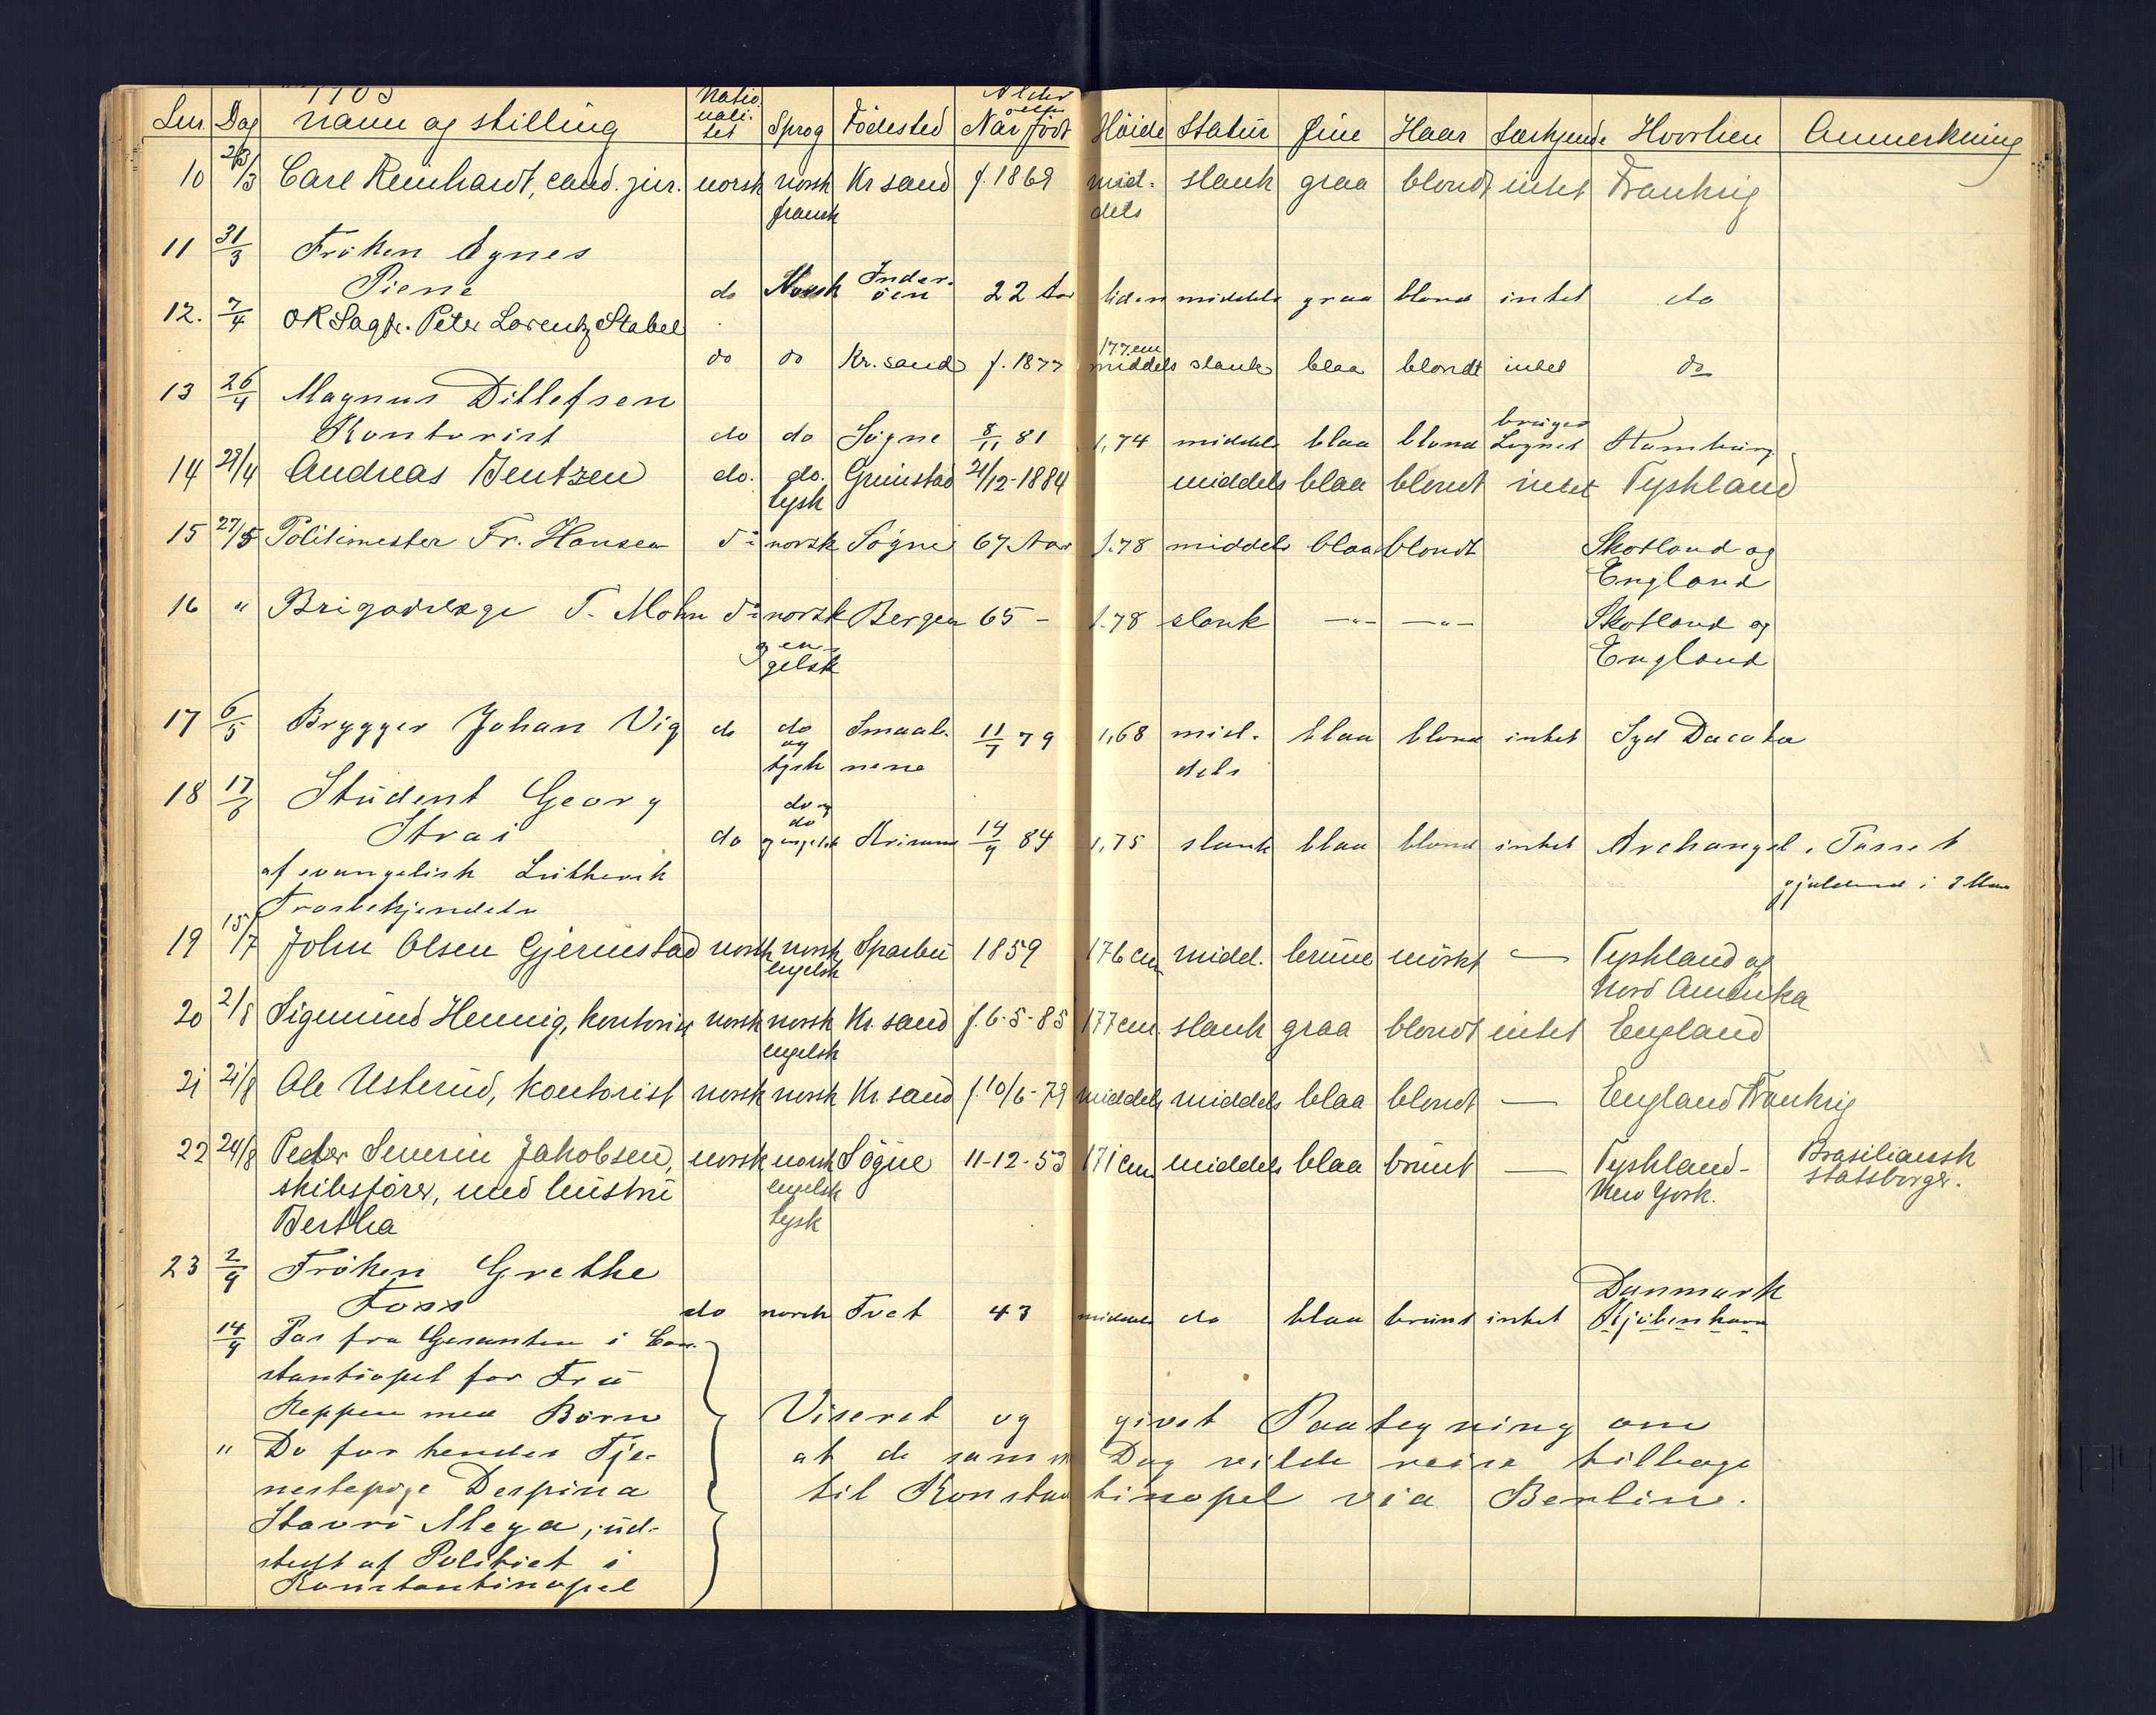 1905
Lnr Dag Navn og stilling Natio-nali-tet Sprog Födested Alder eller Naar födt Høide Statur Øine Haar Særkjende Hvorhen Anmerkning
10 28/3 Carl Reinhardt, cand. jur. norsk norsk Kr sand f. 1869 mid- slank graa blondt intet Frankrig
fransk dels
11 31/3 Fröken Agnes
Piene do Norsk Inder-öen 22 Aar liden middels graa blond intet do
12. 7/4 OR Sagf. Peter Lorentz Stabel
do do Kr. sand f. 1877 177 cm middels slank blaa blondt intet do
13 26/4 Magnus Ditlefsen
Kontorist do do Søgne 8/11 81 1,74 middels blaa blond bruger Lorgnet Hamburg
14 29/4 Andreas Bentzen do. do. Grimstad 21/12-1884 middels blaa blondt intet Tyskland
tysk
15 27/5 Politimester Fr. Hansen do norsk Sögne 67 Aar 1.78 middels blaa blondt Skotland og
England
16 " Brigadelæge T. Mohn do norsk Bergen 65 - 1.78 slank -"- -"- Skotland og
og en-gelsk England
17 6/5 Brygger Johan Vig do do Smaal- 11/7 79 1,68 mid- blaa blond intet Syd Dacota
og tysk nene dels
18 17/6 Student Georg do og
Strai do do og engelsk 14/9 84 1,75 slank blaa blond intet Archangel. Passet
af evangelisk Luthersk gjældende i 3 Mdr
Trosbekjendelse
19 15/7 John Olsen Gjermstad norsk norsk Sparbu 1859 176 cm midd. brune mörkt — Tyskland og
engelsk Nord Amerika
20 2/8 Sigmund Hennig, kontorist norsk norsk Kr. sand f. 6-5-85 177 cm slank graa blondt intet England
engelsk
21 21/8 Ole Usterud, kontorist norsk norsk Kr. sand f. 10/6-79 middels middels blaa blondt — England Frankrig
22 24/8 Peder Severin Jakobsen, norsk norsk Sögne 11-12-53 171 cm middels blaa brunt — Tyskland- Brasiliansk
skibsförer, med hustru engelsk New York. statsborger.
Bertha tysk
23 2/9 Fröken Grethe Danmark
Foss do norsk Tvet 43 middels do blaa brunt intet Kjöbenhavn
14/9 Pas fra Gesanten i Con-
stantiopel for Fru
Reppen med Börn Viseret og givet Paategning om
" Do for hendes Tje- at de samme Dag vilde reise tilbage
nestepige Despina til Konstantinopel via Berlin.
Stavro Mega, ud-
stedt af Politiet i
Konstantinopel